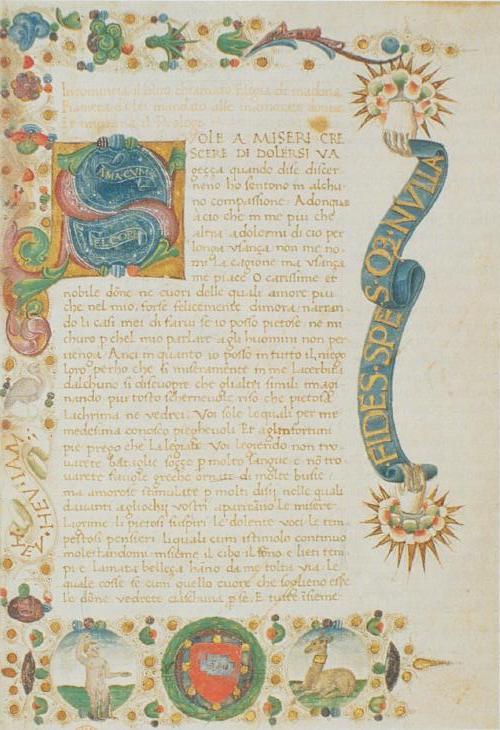 Incomincia il libro chiamato Elegia di madona
Fiametta da lei mandato alle inamorate donne
Et inprima il Prologo
SOLE A MISERI CRE
SCERE DI DOLERSI VA
geçça quando disé discer
neno ho sentono in alchu
no compassione. Adonque
acio che in me piu che
altra a dolermi di cio per
longa usança non me no
mi la cagione ma usança
me piace O carissime et
nobile dōne ne cuori delle quali amore piu
che nel mio, forse felicemente dimora, narran
do li casi mei di farui se io posso pietose ne mi
churo p chel mio parlare agli huomini non per
uenga. Anci in quanto io posso in tutto il niego
loro perho che si miseramente in me lacerbita
dalchuno si discuopre che gli altri simili imagi
nando piu tosto scherneuole riso che pietosa
Lachrima ne vedrei. Voi sole le quali per me
medesima conosco pieghevoli Et agl infortuni
pie prego che La legiate. Voi legiendo non tro
uarete fauole greche ornate di molte busie
ma amorose stimulate p molti disij nelle quali
dauanti agliochi vostri appariranno le misere
Lagrime li pietosi suspiri le dolente voci le tem
pestosi pensieri li quali cum istimolo continuo
molestandomi insieme il cibo il sono e lieti tem
pi e lamata bellega hano da me tolta via. Le
quale cosse se cum quello cuore che sogliono esse
le dōne vedrete ciaschuna p se. E tutte insieme
AMACVM
FIDES·SPES·